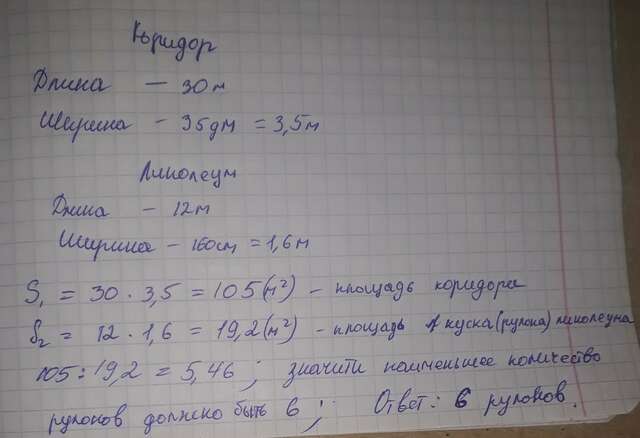 Коридор
Длина — 30м
Ширина - 35дм = 3,5м
Линолеум
Длина - 12м
Ширина - 160см = 1,6м
S₁ = 30 · 3,5 = 105(м²) - площадь коридора
S₂ = 12 · 1,6 = 19,2(м²) - площадь 1 куска (рулона) линолеума
105 : 19,2 = 5,46 ; значить наименьшее количество
рулонов должно быть 6 ; Ответ: 6 рулонов.